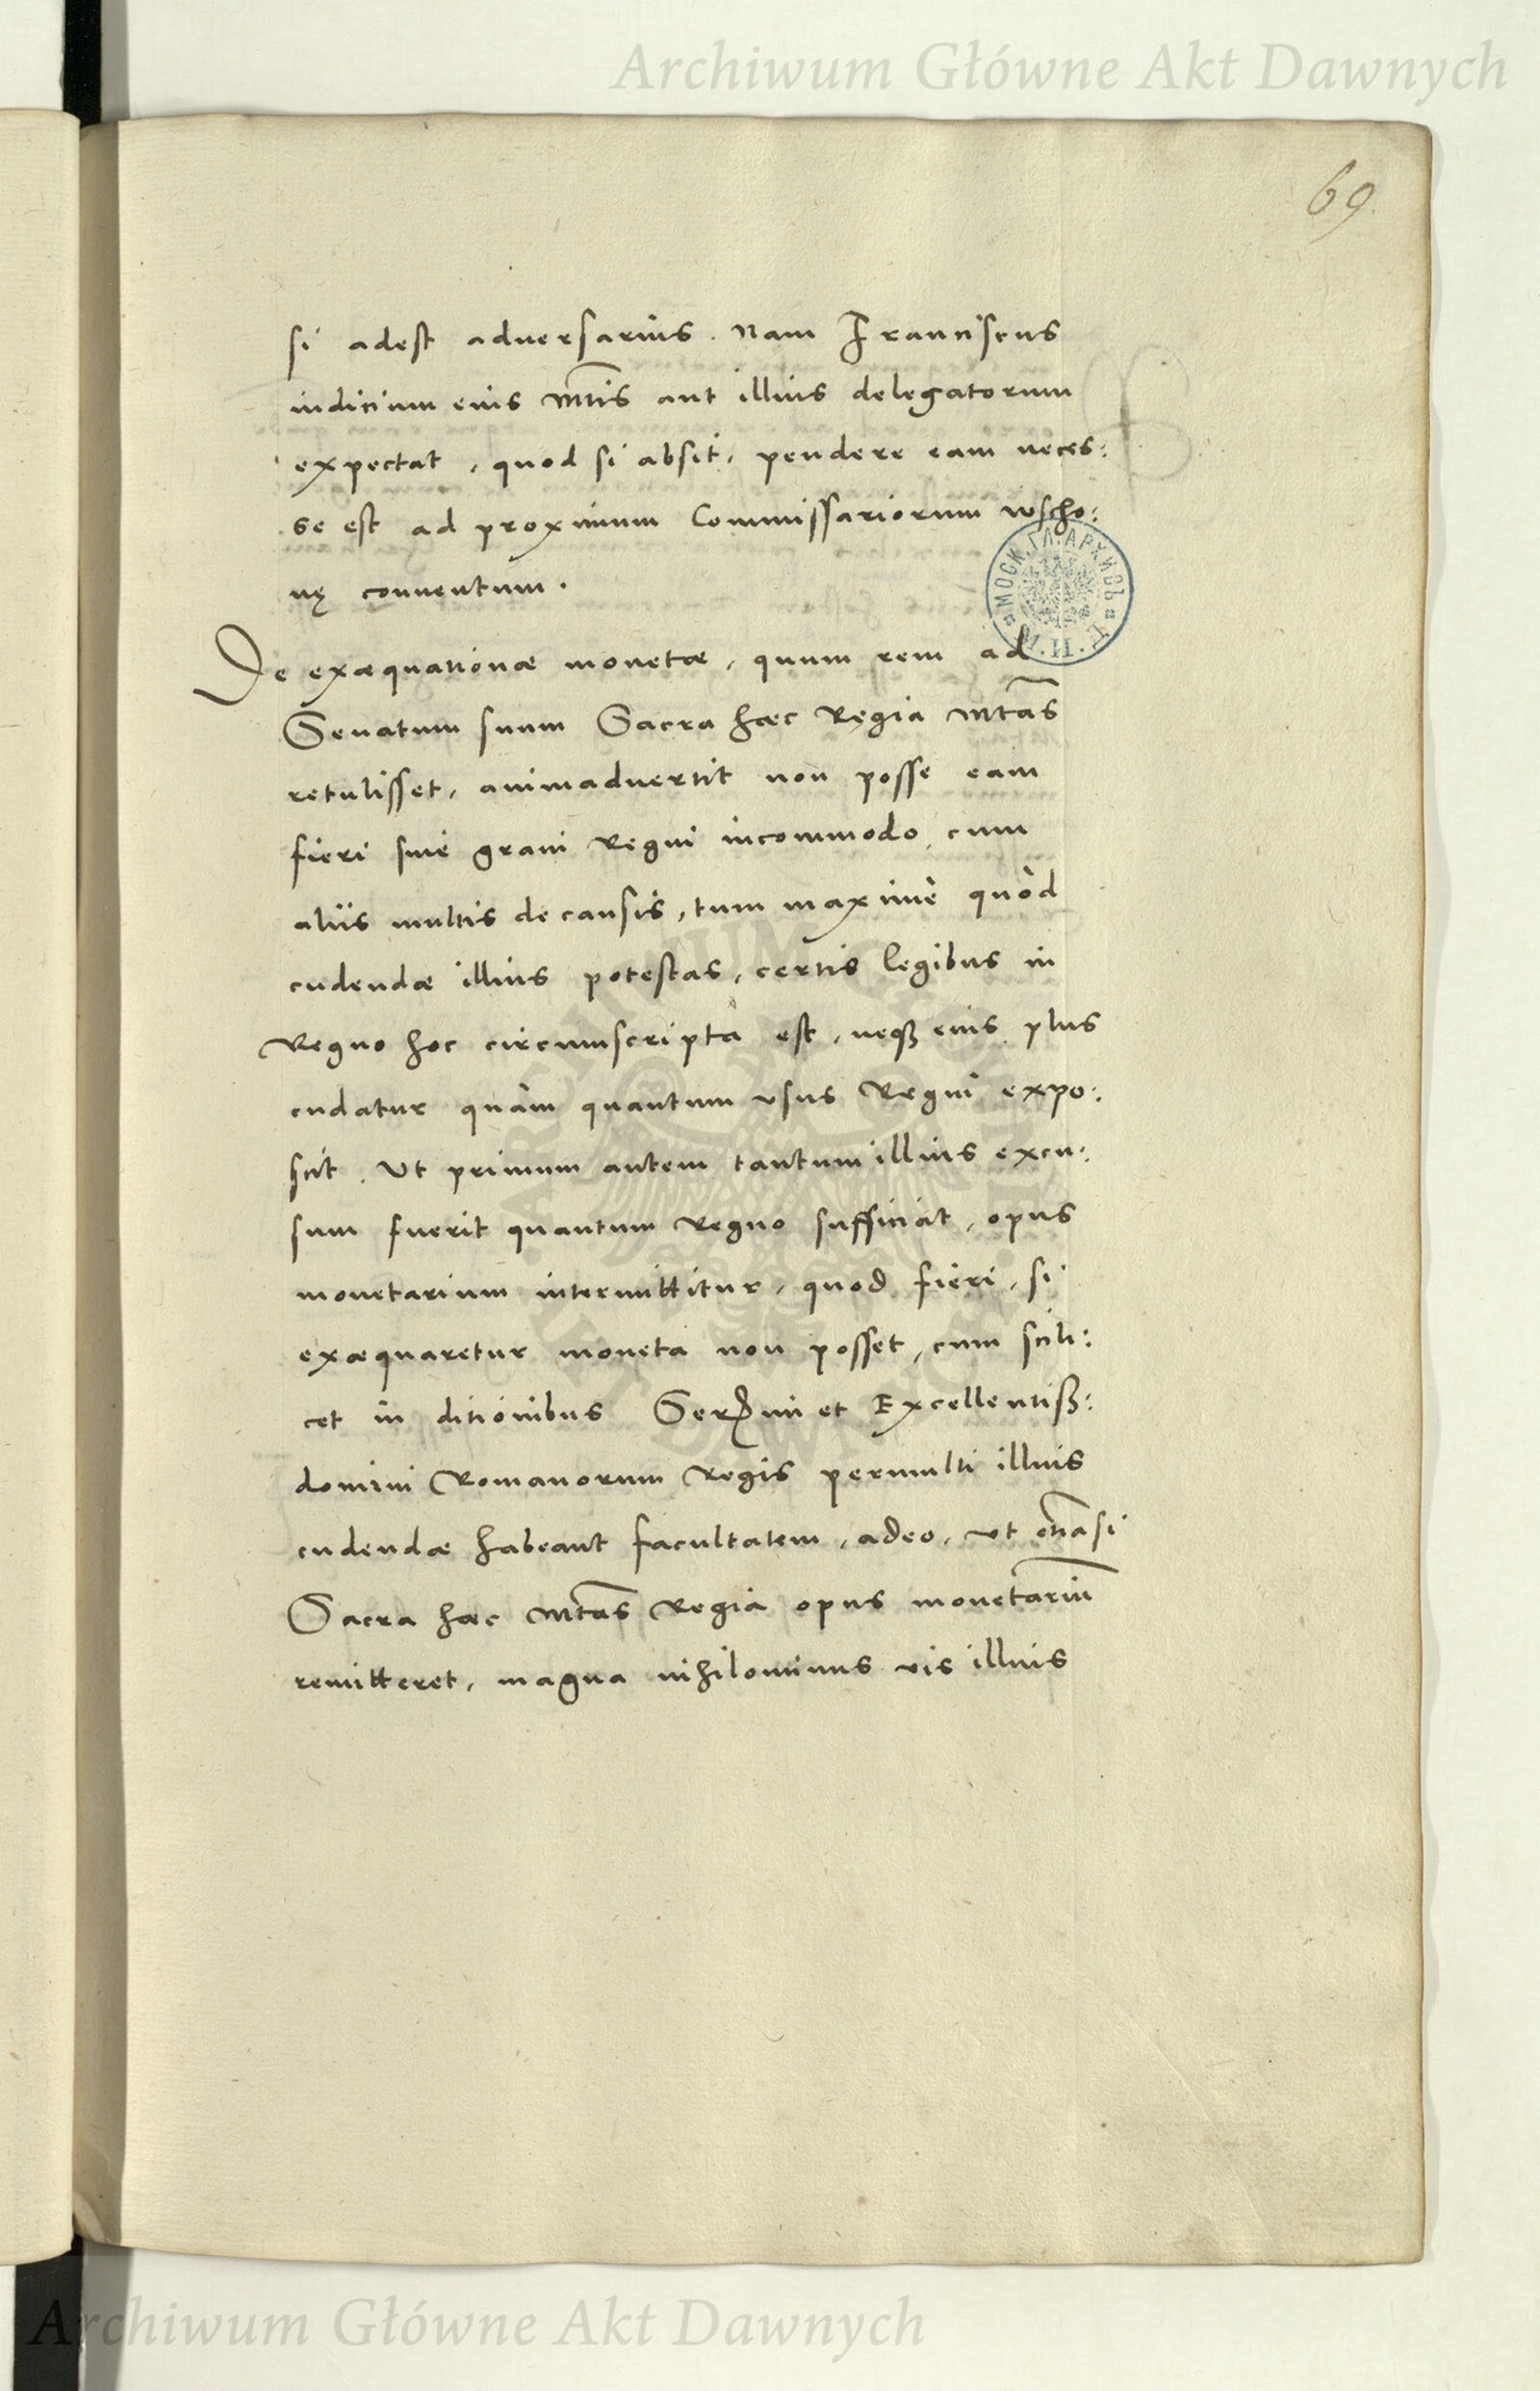 Archiwum Główne Akt Dawnych
69
si adest adversarius. Nam Franciscus
iudicium eius Mtis aut illius delegatorum
expectat, quod si absit, pendere eam neces:
se est ad proximum Commissariorum wscho:
nę conventum.
De exæquationæ monetæ, quum rem ad
Senatum suum Sacra hæc Regia Mtas
retulisset, animadvertit non posse eam
fieri sine gravi Regni incommodo, cum
aliis multis de causis, tum maximè quòd
cudendæ illius potestas, certis legibus in
Regno hoc circumscripta est, neque eius plus
cudatur quàm quantum usus Regni expo:
scit. Ut primum autem tantum illius excu:
sum fuerit quantum Regno sufficiat, opus
monetarium intermittitur, quod fieri, si
exæquaretur moneta non posset, cum scili:
cet in ditionibus Sermi et Excellentiss:
domini Romanorum Regis permulti illius
cudendæ habeant facultatem, adeo, ut etiãsi
Sacra hæc Mtas Regia opus monetariũ
remitteret, magna nihilominus vis illius
МОСК. ГЛ. АРХИВЪ
М.И.Д.
Archiwum Główne Akt Dawnych